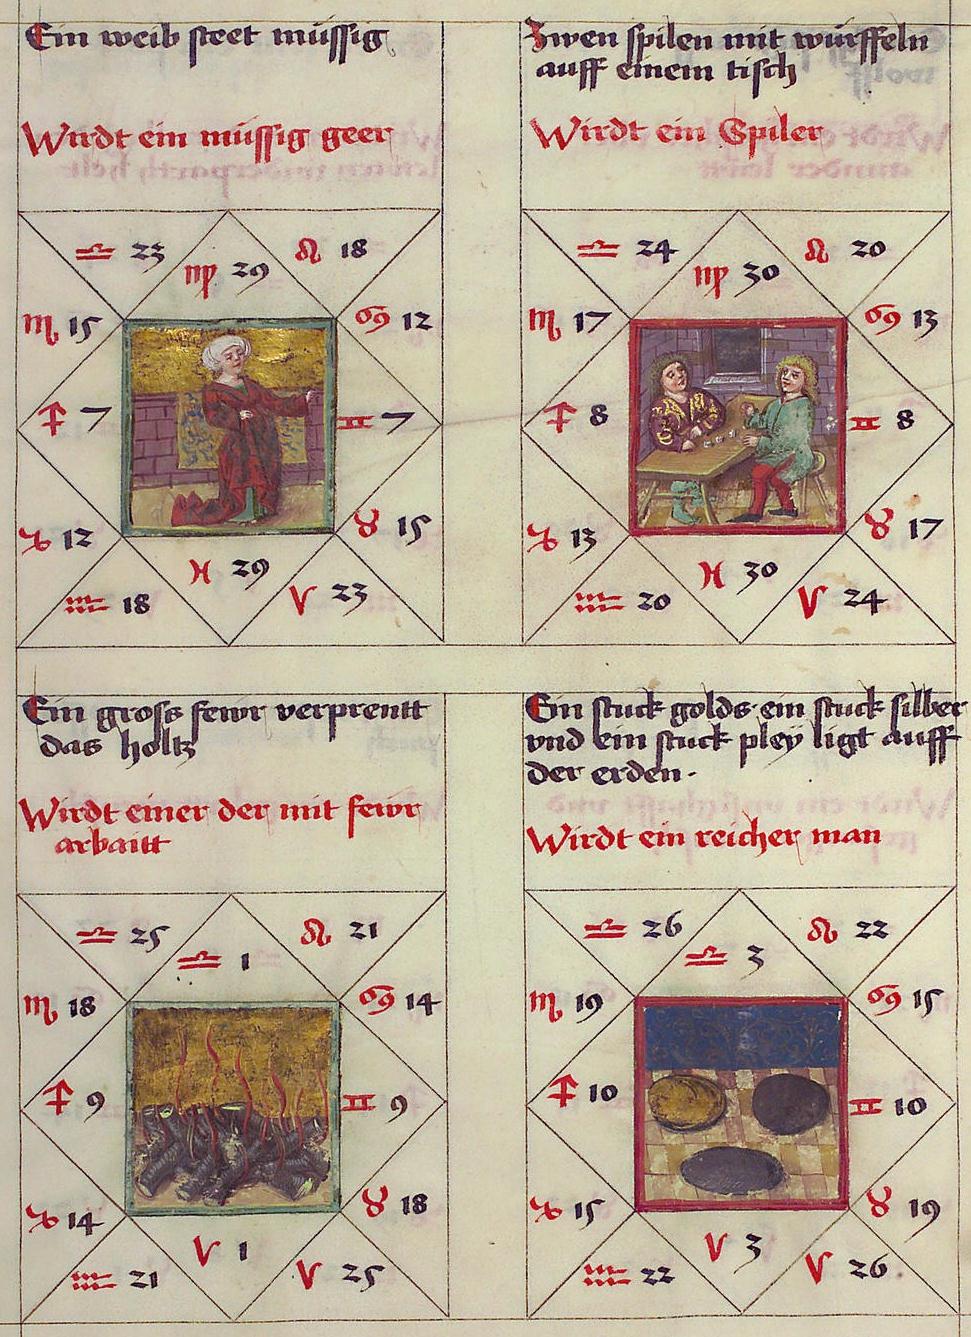 Ein weib steet müssig
Wirdt ein müssig geer
♎ 23
♍ 29
♌ 18
♏ 15
♋ 12
♐ 7
♊ 7
♑ 12
♉ 15
♒ 18
♓ 29
♈ 23
Zwen spilen mit würffeln
auff einem tisch
Wirdt ein Spiler
♎ 24
♍ 30
♌ 20
♏ 17
♋ 13
♐ 8
♊ 8
♑ 13
♉ 17
♒ 20
♓ 30
♈ 24
Ein gross fewr verprentt
das holtz
Wirdt einer der mit fewr
arbaitt
♎ 25
♎ 1
♌ 21
♏ 18
♋ 14
♐ 9
♊ 9
♑ 14
♉ 18
♒ 21
♈ 1
♈ 25
Ein stuck golds ein stuck silber
vnd ein stuck pley ligt auff
der erden·
Wirdt ein reicher man
♎ 26
♎ 3
♌ 22
♏ 19
♋ 15
♐ 10
♊ 10
♑ 15
♉ 19
♒ 22
♈ 3
♈ 26